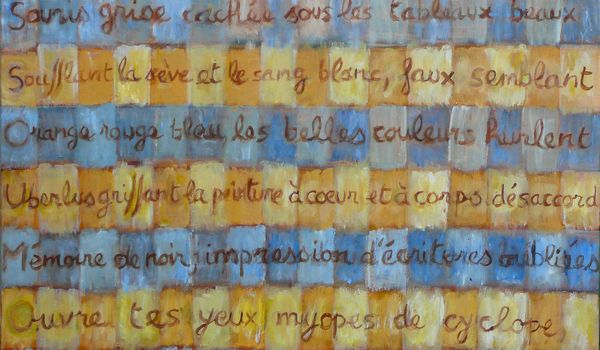 Souris grise cachée sous les tableaux beaux
Soufflant la sève et le sang blanc, faux semblant
Orange rouge bleu, les belles couleurs hurlent
griffant la peinture à coeur et à corps désaccord
Mémoire de noir, impression d'écritures oubliées
Ouvre tes yeux myopes de cyclope,